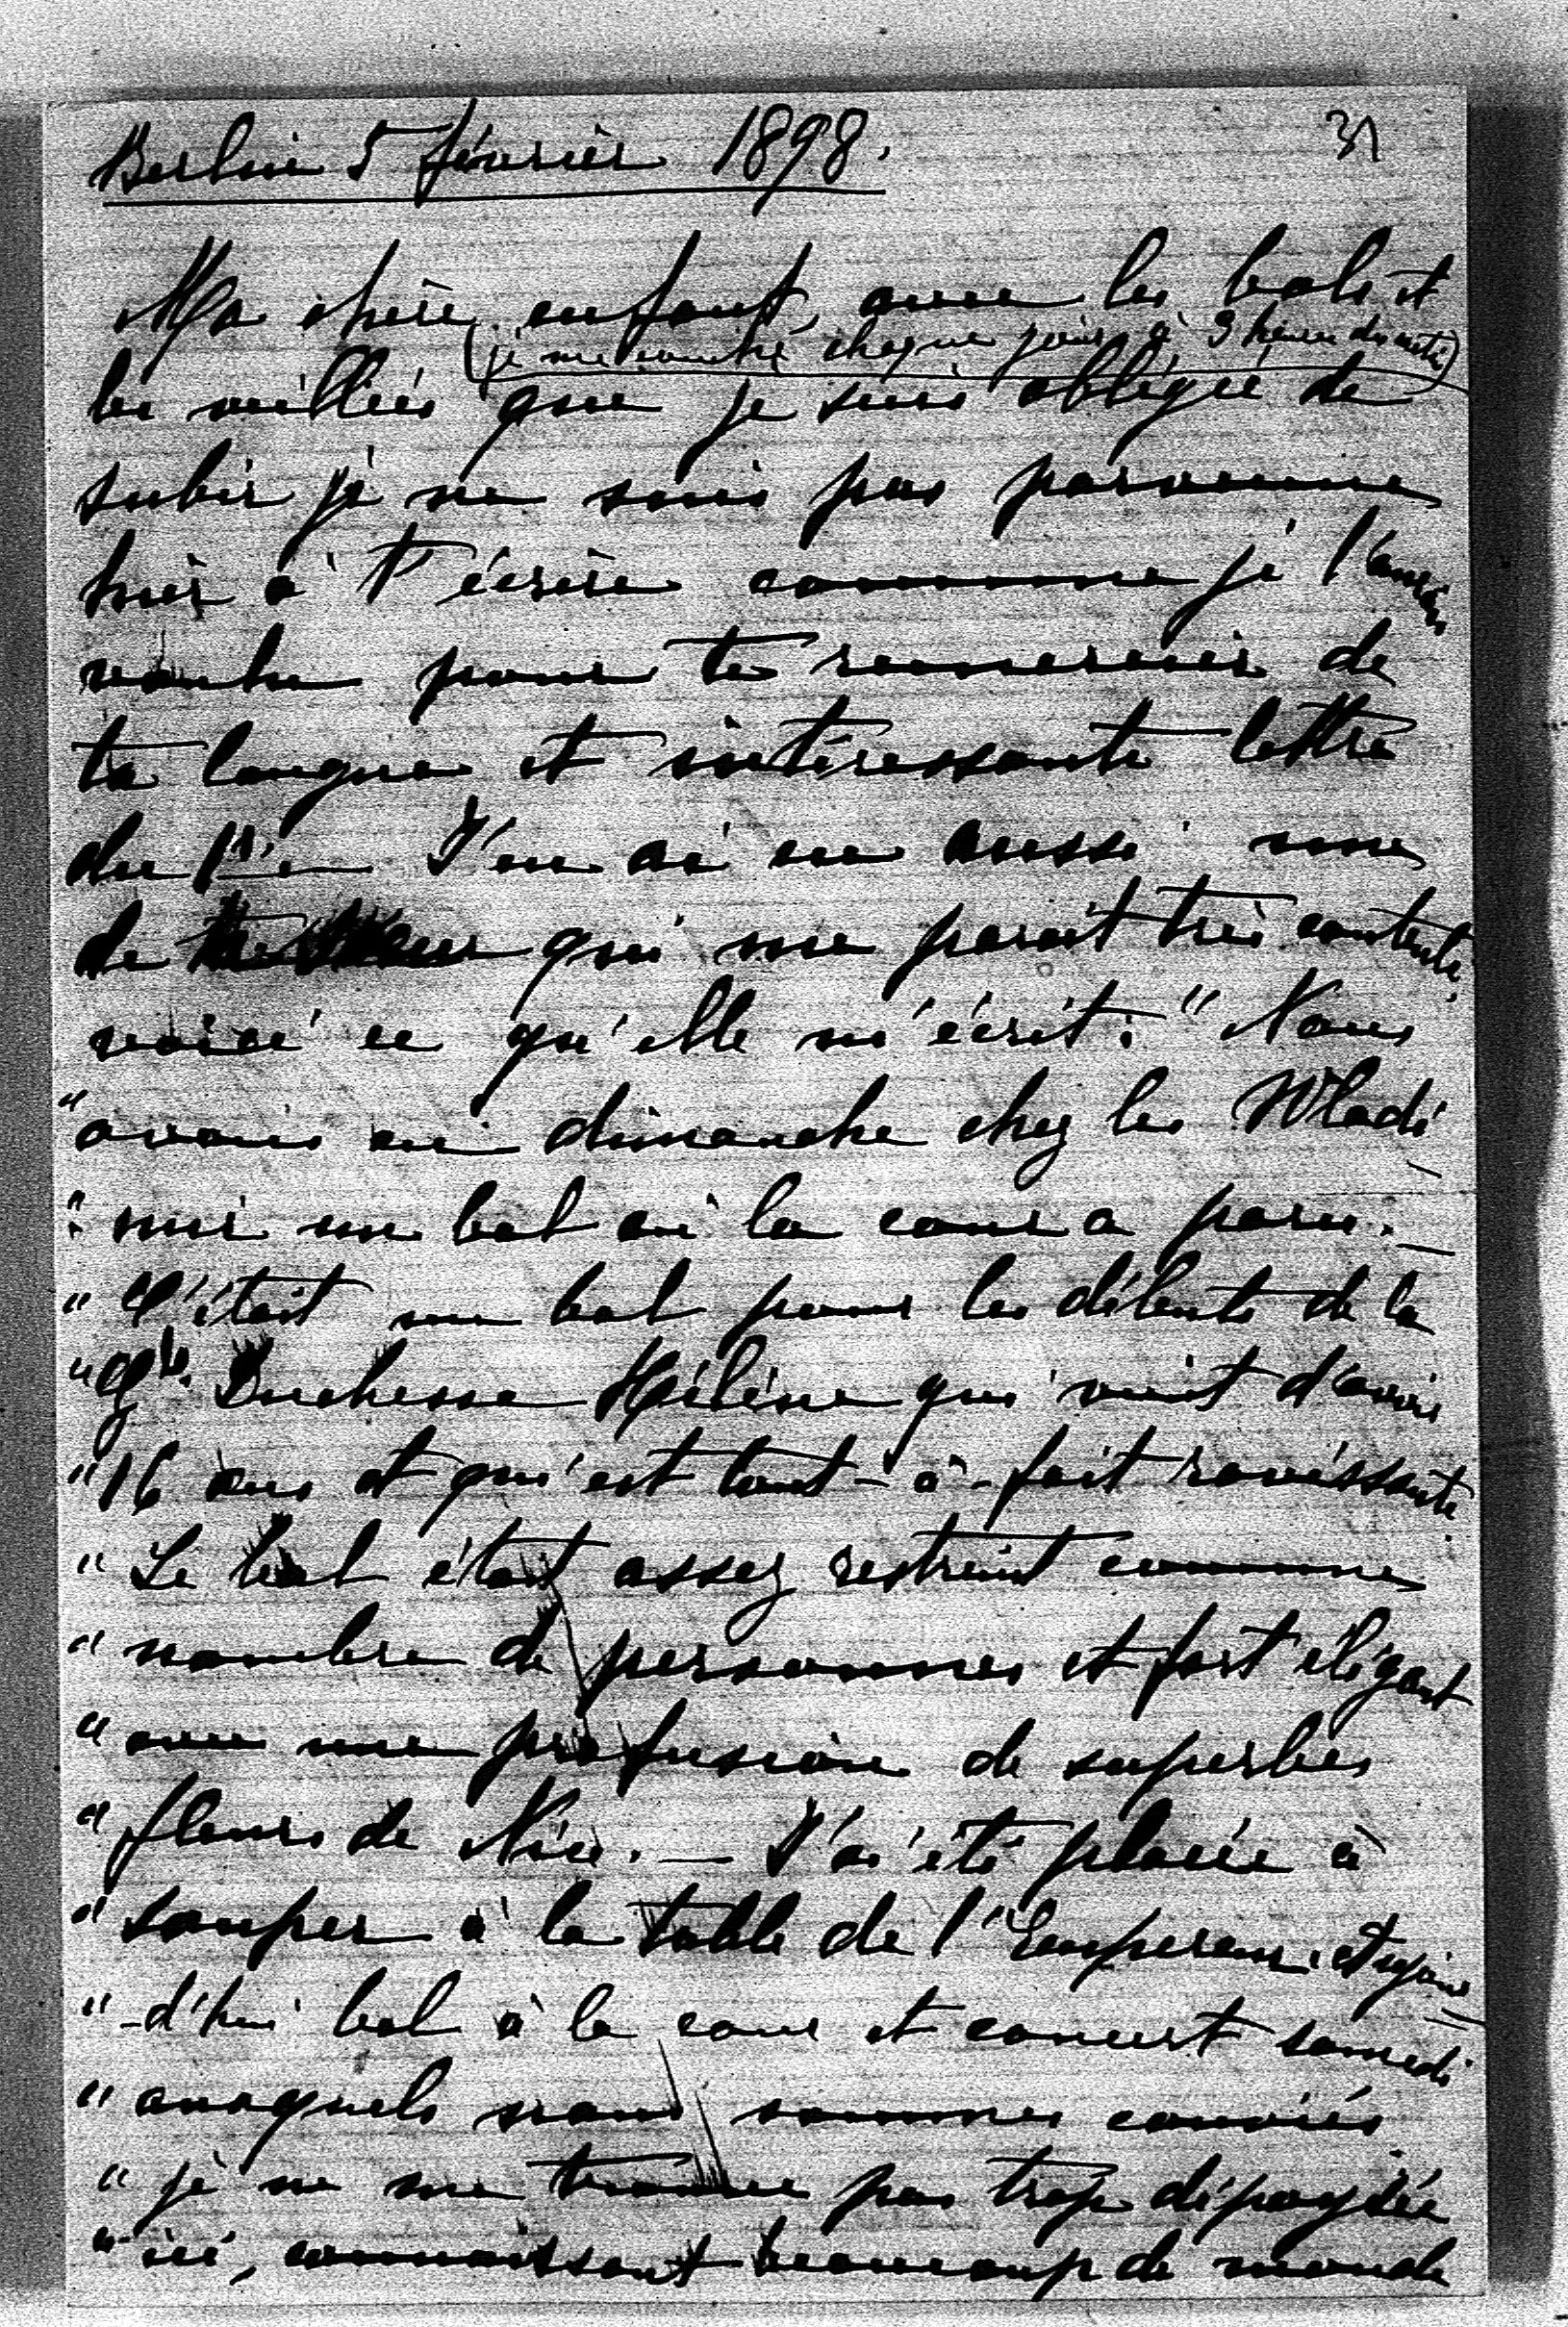 Berlin 5 février 1898.
31
Ma chère enfant, avec les bals et
(je me couche chaque jour à 3 heures du matin)
les veillées que je suis obligée de
subir je ne suis pas parvenue
hier à t'écrire comme je l'aurais
voulu pour te remercier de
ta longue et intéressante lettre
du 1er. J'en ai eu aussi une
de ta sœur qui me parait très contente.
voici ce qu'elle m'écrit: "Nous
"avons eu dimanche chez les Wladi-
"mir un bal où la cour a paru. —
"C'était un bal pour les débuts de la
"Gde. Duchesse Hélène qui vient d'avoir
"16 ans et qui est tout-à-fait ravissante.
"Le bal était assez restreint comme
"nombre de personnes et fort élégant
"avec une profusion de superbes
"fleurs de Nice. — J'ai été placée à
"souper à la table de l'Empereur. Aujour-
"-d'hui bal à la cour et concert samedi
"auxquels nous sommes conviés.
"je ne me trouve pas trop dépaysée
"ici, connaissant beaucoup de monde